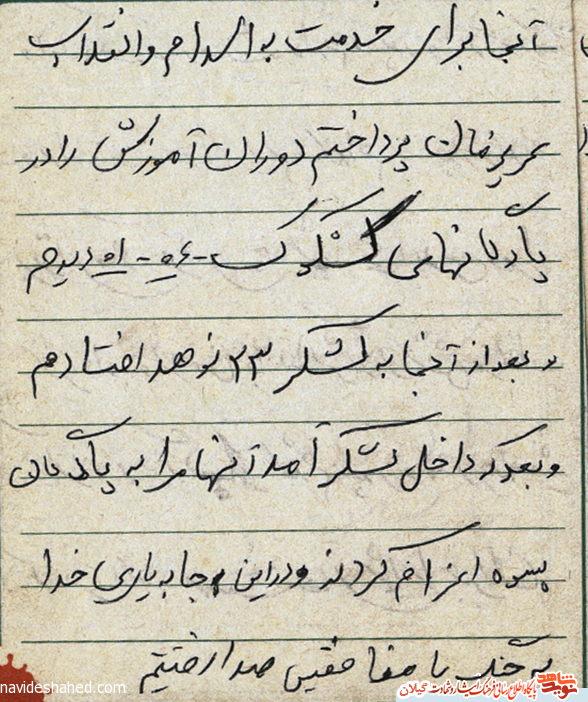 آنجا برای خدمت به اسلام و انقلاب
عزیزمان پرداختم دوران آموزش را در
پادگانهای کشکوک - ۰۶ - ۰۱ دیدم
و بعد از آنجا به لشکر ۲۳ نوهد افتادم
و بعد که داخل لشکر آمد آنها مرا به پادگان
پسوه اعزام کردند و در این جا به یاری خدا
به جنگ با منافقین صدا رفتیم
navideshahed.com
نوید شاهد
پایگاه اطلاع رسانی فرهنگ ایثار و شهادت گیلان